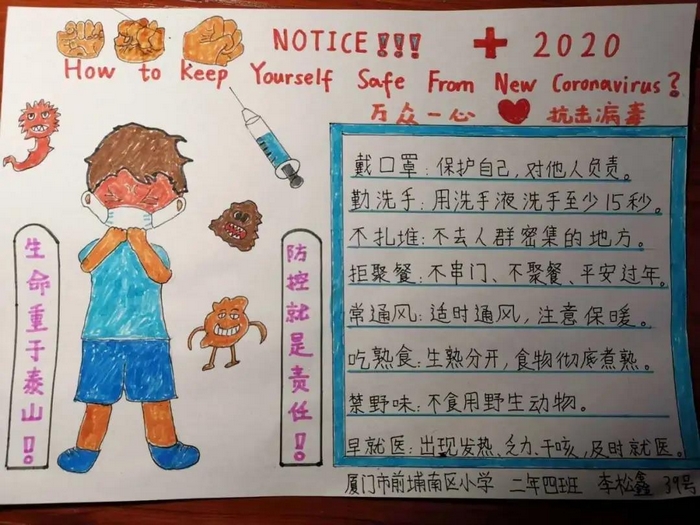 NOTICE!!! 2020
How to Keep Yourself Safe From New Coronavirus?
万众一心 抗击病毒
生命重于泰山!
防控就是责任!
戴口罩:保护自己,对他人负责。
勤洗手:用洗手液洗手至少15秒。
不扎堆:不去人群密集的地方。
拒聚餐:不串门、不聚餐、平安过年。
常通风:适时通风,注意保暖。
吃熟食:生熟分开,食物彻底煮熟。
禁野味:不食用野生动物。
早就医:出现发热、乏力、干咳,及时就医。
厦门市前埔南区小学 二年四班 李松鑫 39号